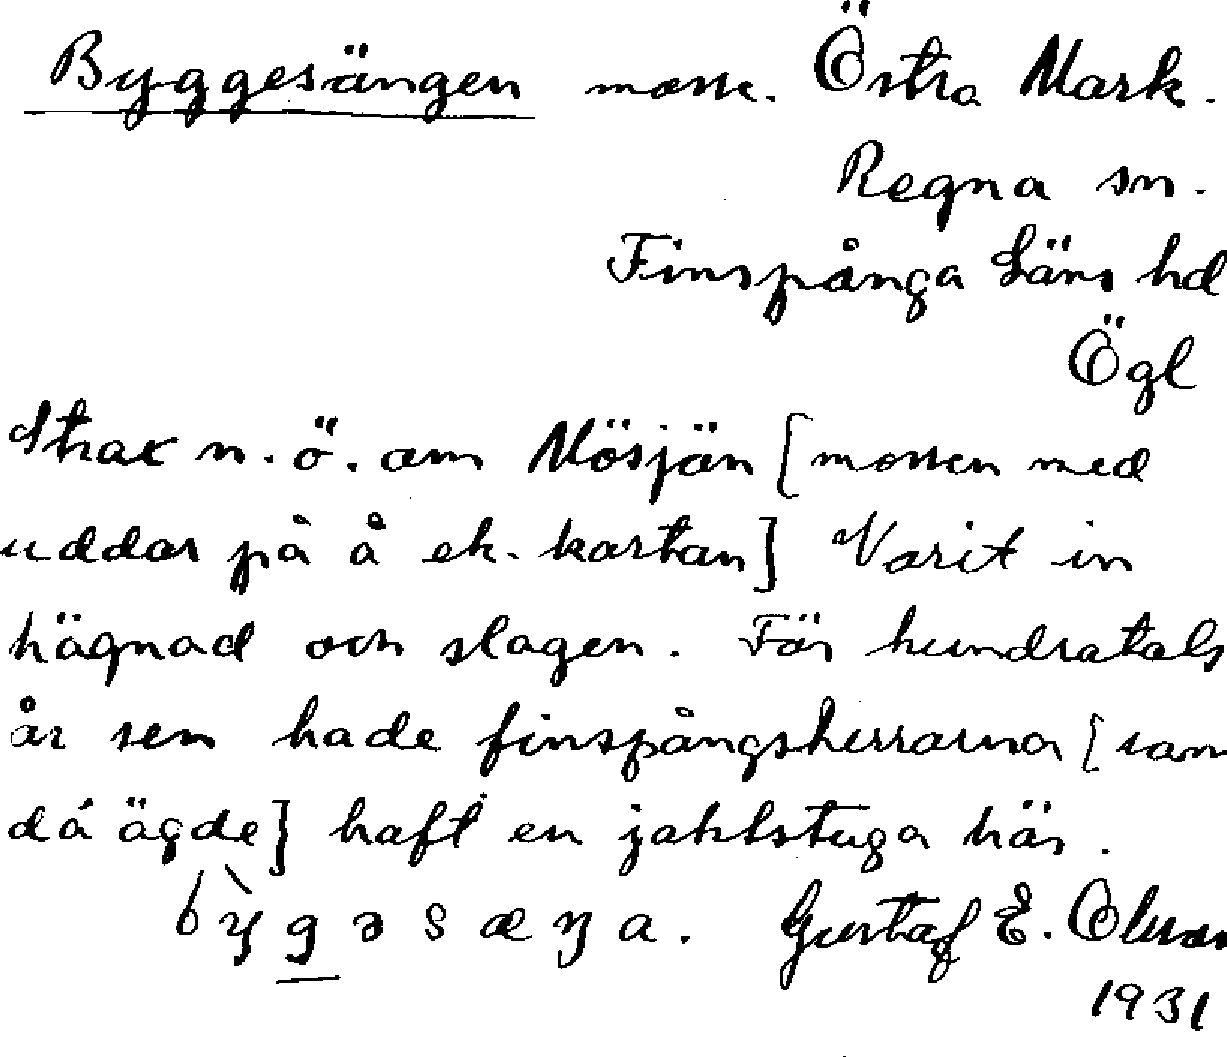 Byggesängen mosse. Östra Mark.
Regna sn.
Finspånga Läns hd
Ögl
Strax n.ö. om Mösjön [mossen med
uddar på å ek. kartan] Varit in
hägnad och slagen. För hundratals
år sen hade finspångsherrarna [som
då ägde] haft en jaktstuga här.
bỳgəsæŋa. Gustaf E. Olsson
1931